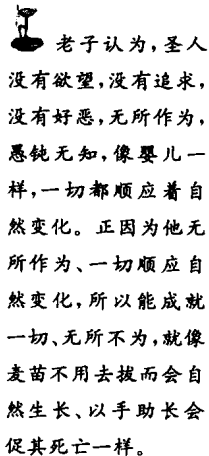 老子认为，圣人
没有欲望，没有追求，
没有好恶，无所作为，
愚钝无知，像婴儿一
样，一切都顺应着自
然变化。正因为他无
所作为、一切顺应自
然变化，所以能成就
一切、无所不为，就像
麦苗不用去拔而会自
然生长、以手助长会
促其死亡一样。